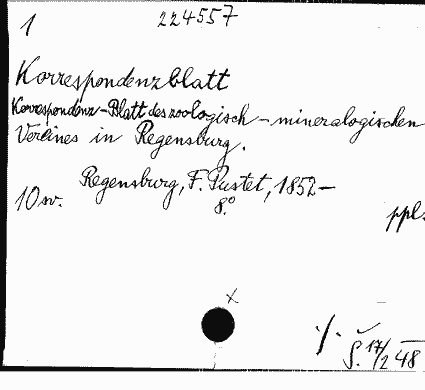 1 224557
Korrespondenzblatt
Korrespondenz-Blatt des zoologisch-mineralogischen
Vereines in Regensburg.
Regensburg, F. Pustet, 1852-
10 sv. 8.° ppl.
x
./. Š. 17/2 48